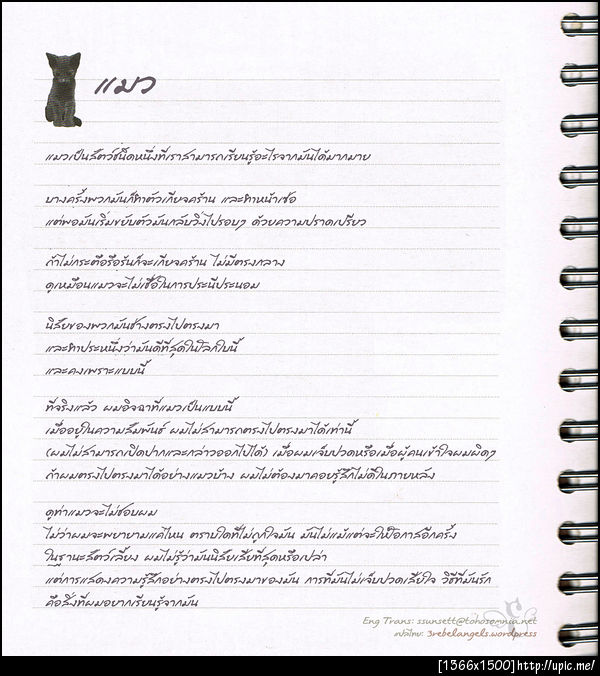 แมว
แมวเป็นสัตว์ชนิดหนึ่งที่เราสามารถเรียนรู้อะไรจากมันได้มากมาย
บางครั้งพวกมันก็ทำตัวเกียจคร้าน และทำหน้าเซ่อ
แต่พอมันเริ่มขยับตัวมันกลับวิ่งไปรอบๆ ด้วยความปราดเปรียว
ถ้าไม่กระตือรือร้นก็จะเกียจคร้าน ไม่มีตรงกลาง
ดูเหมือนแมวจะไม่เชื่อในการประนีประนอม
นิสัยของพวกมันช่างตรงไปตรงมา
และทำประหนึ่งว่ามันดีที่สุดในโลกใบนี้
และคงเพราะแบบนี้
ที่จริงแล้ว ผมอิจฉาที่แมวเป็นแบบนี้
เมื่ออยู่ในความสัมพันธ์ ผมไม่สามารถตรงไปตรงมาได้เท่านี้
(ผมไม่สามารถเปิดปากและกล่าวออกไปได้) เมื่อผมเจ็บปวดหรือเมื่อผู้คนเข้าใจผมผิดๆ
ถ้าผมตรงไปตรงมาได้อย่างแมวบ้าง ผมไม่ต้องมาคอยรู้สึกไม่ดีในภายหลัง
ดูท่าแมวจะไม่ชอบผม
ไม่ว่าผมจะพยายามแค่ไหน ตราบใดที่ไม่ถูกใจมัน มันไม่แม้แต่จะให้โอกาสอีกครั้ง
ในฐานะสัตว์เลี้ยง ผมไม่รู้ว่ามันนิสัยเสียที่สุดหรือเปล่า
แต่การแสดงความรู้สึกอย่างตรงไปตรงมาของมัน การที่มันไม่เจ็บปวดเสียใจ วิธีที่มันรัก
คือสิ่งที่ผมอยากเรียนรู้จากมัน
Eng Trans: ssunsett@tohosomnia.net
แปลไทย: 3rebelangels.wordpress
[1366x1500]http://upic.me/